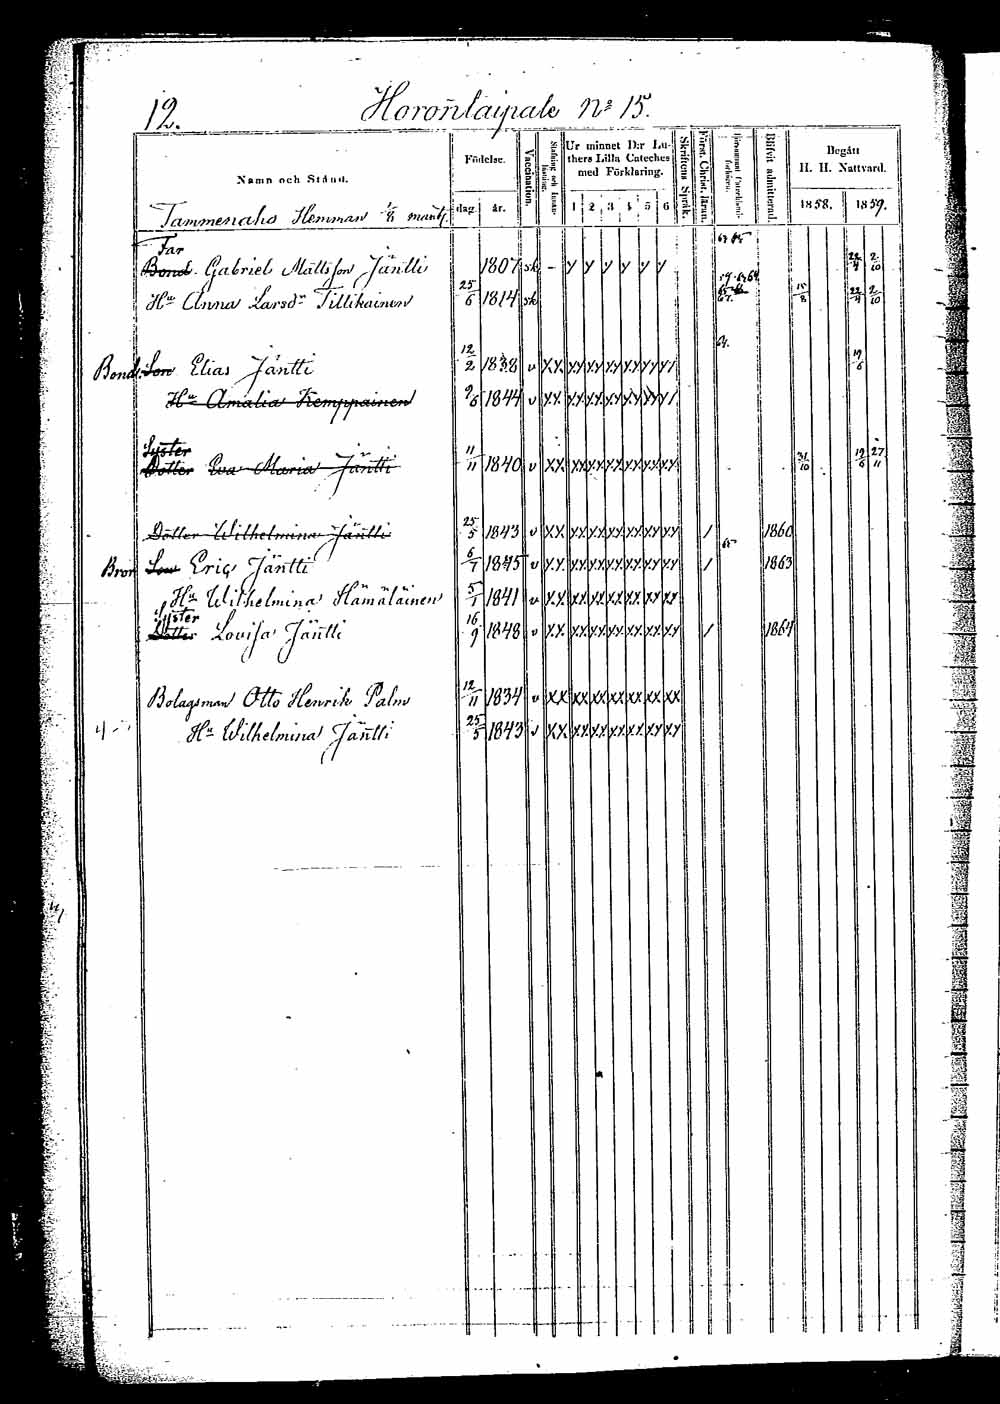 12.
Horonlaipale No 15.
Namn och Stånd.
Födelse.
dag. år.
Vaccination.
Ur minnet D:r Lu-
thers Lilla Cateches
med Förklaring.
1 2 3 4 5 6
Skriftens Språk.
Först. Christ. läran.
Blifvit admitterad.
Begått
H. H. Nattvard.
1858. 1859.
Tammenaho Hemman 1/8 mantl.
Far
Bond. Gabriel Mattsson Jäntti 1807 sk - y y y y y y 22/4 2/10
Hu Anna Larsdr Tillikainen 25/6 1814 sk 15/8 22/4 2/10
Bond. Son Elias Jäntti 12/2 1838 v xx xx xx xx xx xx x/ 64. 19/6
Hu Amalia Kemppainen 9/6 1844 v xx xx xx xx xx xx x/
Syster
Dotter Eva Maria Jäntti 11/11 1840 v xx xx xx xx xx xx xx 31/10 19/6 27/11
Dotter Wilhelmina Jäntti 25/5 1843 v xx xx xx xx xx xx xx / 1860
Bror Son Eric Jäntti 6/1 1845 v xx xx xx xx xx xx xx / 65 1863
Hu Wilhelmina Hämäläinen 5/1 1841 v xx xx xx xx xx xx xx
Syster
Dotter Lovisa Jäntti 16/9 1848 v xx xx xx xx xx xx xx / 1864
Bolagsman Otto Henrik Palm 12/11 1834 v xx xx xx xx xx xx xx
Hu Wilhelmina Jäntti 25/5 1843 v xx xx xx xx xx xx xx